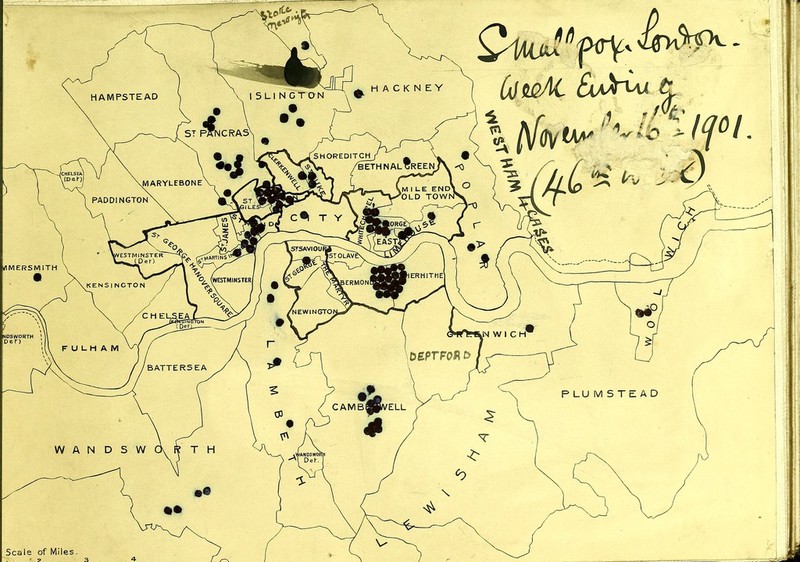 Stoke
Newington
Smallpox. London.
Week Ending
November 16th 1901.
(46th week)
WESTHAM 4 CASES
HAMPSTEAD
ISLINGTON
HACKNEY
ST PANCRAS
SHOREDITCH
CLERKENWELL
ST LUKE
BETHNAL GREEN
POPLAR
CHELSEA
(Det)
MARYLEBONE
PADDINGTON
MILE END
OLD TOWN
ST
GILES
STRAND
CITY
WHITECHAPEL
ST GEORGE
EAST
LIMEHOUSE
ST JAMES
ST MARTINS
ST GEORGE HANOVER SQUARE
WESTMINSTER
(Det)
WESTMINSTER
ST SAVIOUR
ST OLAVE
ST GEORGE
THE MARTYR
BERMONDSEY
ROTHERHITHE
WOOLWICH
MMERSMITH
KENSINGTON
NEWINGTON
CHELSEA
KENSINGTON
(Det)
NDSWORTH
Det)
FULHAM
BATTERSEA
GREENWICH
DEPTFORD
LAMBETH
CAMBERWELL
PLUMSTEAD
WANDSWORTH
WANDSWORTH
Det.
LEWISHAM
Scale of Miles.
2 3 4